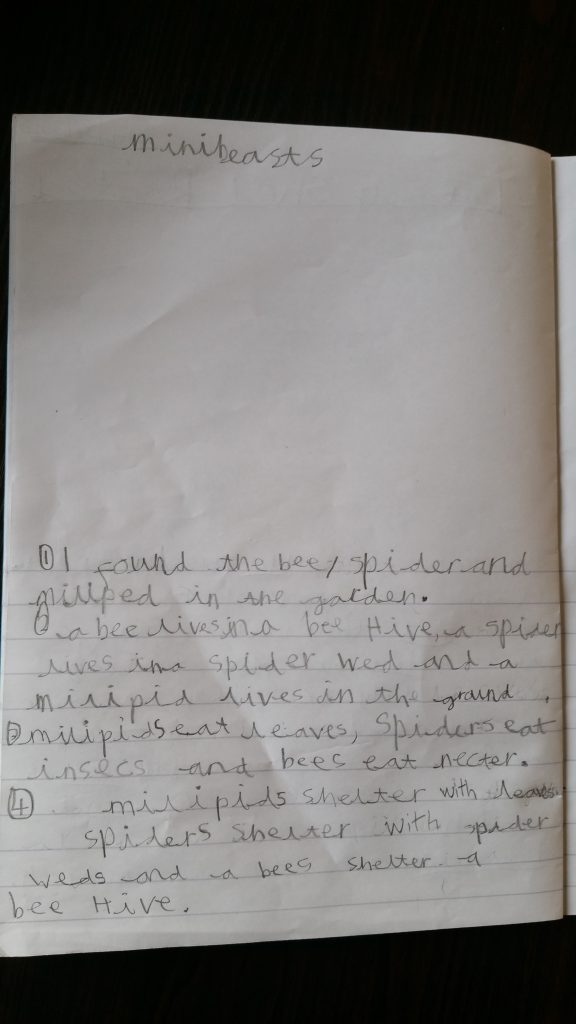 minibeasts
① I found the bee, spider and
millped in the garden.
② a bee lives in a bee Hive, a spider
lives in a spider wed and a
milipid lives in the ground.
③ milipids eat leaves, Spiders eat
insecs and bees eat necter.
4 milipids shelter with leaves
spiders shelter with spider
weds and a bees shelter a
bee Hive.